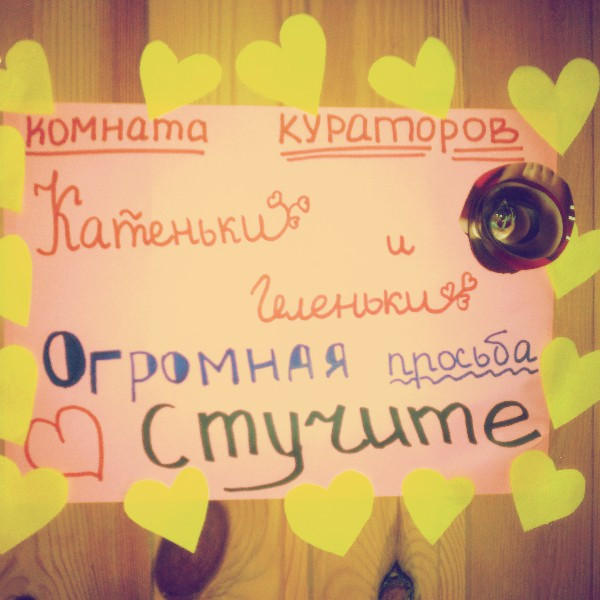 комната кураторов
Катеньки
и
Геленьки
Огромная просьба
Стучите